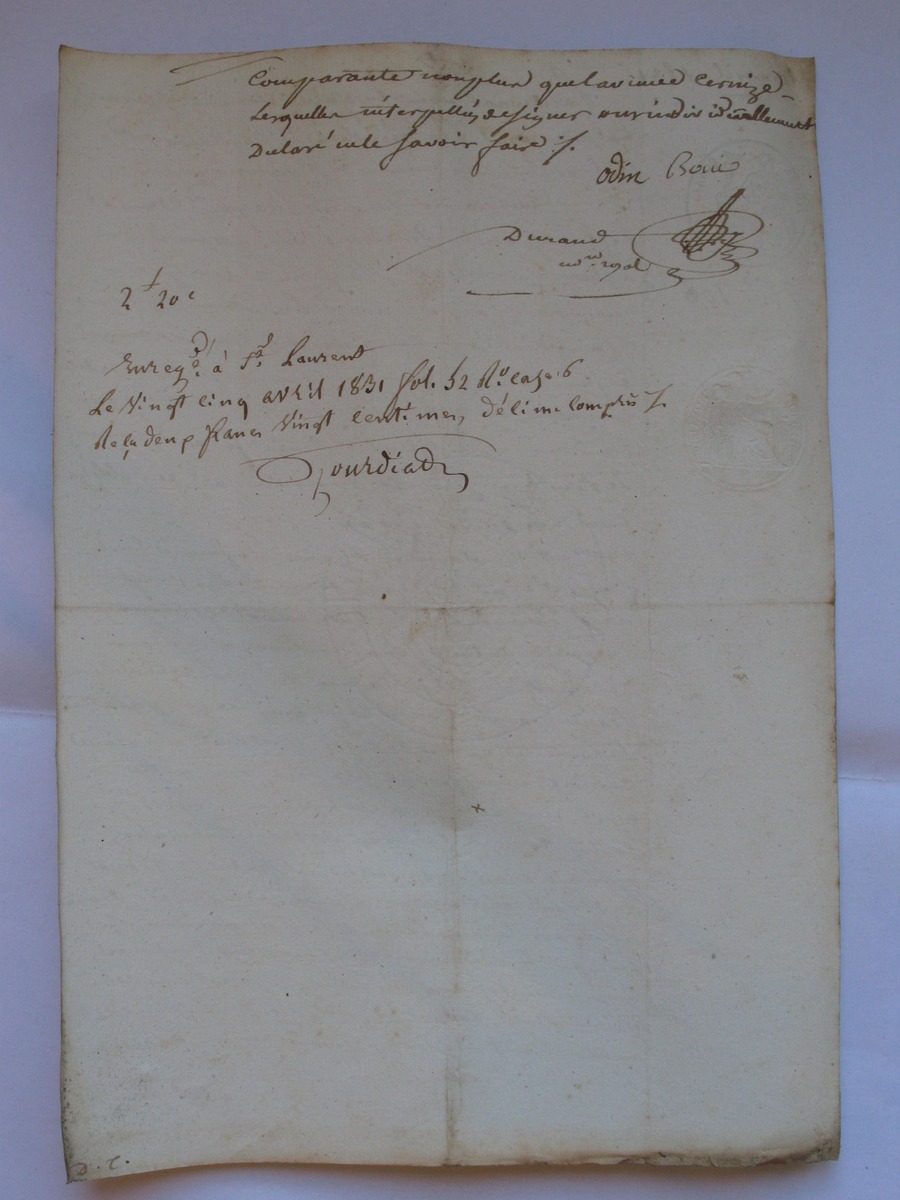 Comparante non plus que la
Lesquelles interpellés de signer ont individuellement
Déclaré ne le savoir faire ./.
odin
Durand
2f 20c
Enregé à St Laurent
Le Vingt cinq avril 1831 fol. 52 Ro case 6
Reçu deux francs Vingt centimes, décime compris ./.
D. C.